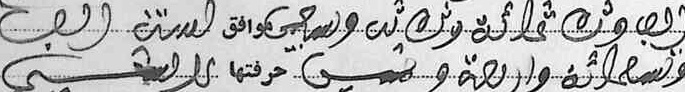 الف وثلاثمائة وثلاثة وسبعين موافق لسنة الف
وتسعمائة واربعة وخمسين حرفتها